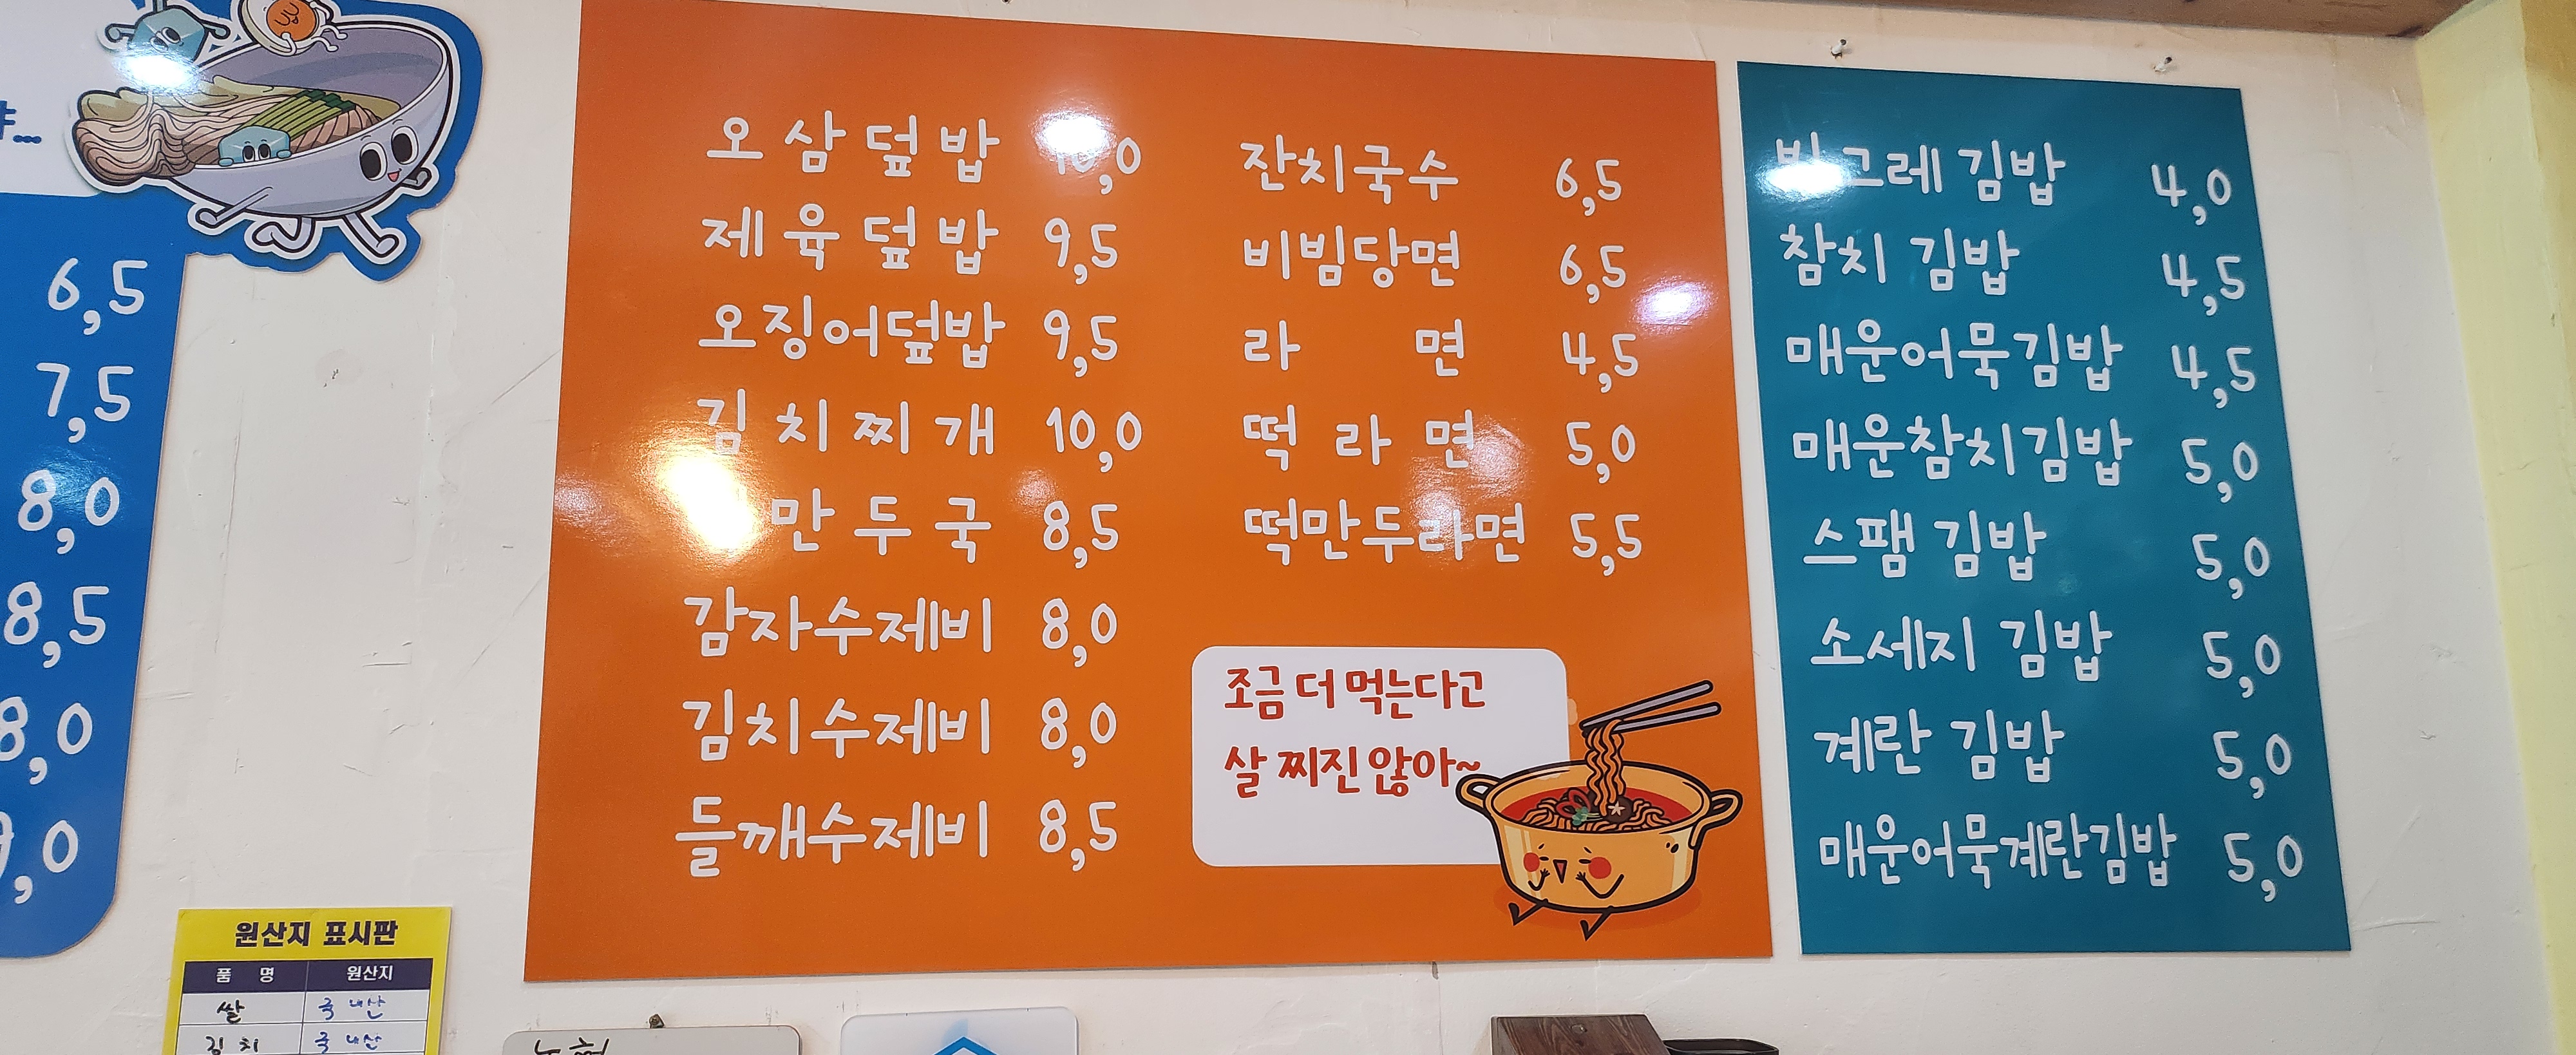 6,5
7,5
8,0
8,5
8,0
,0
오 삼 덮 밥 10,0
제 육 덮 밥 9,5
오징어덮밥 9,5
김 치 찌 개 10,0
만 두 국 8,5
감자수제비 8,0
김치수제비 8,0
들깨수제비 8,5
잔치국수 6,5
비빔당면 6,5
라 면 4,5
떡 라 면 5,0
떡만두라면 5,5
조금 더 먹는다고
살 찌진 않아~
김밥 4,0
참치 김밥 4,5
매운어묵김밥 4,5
매운참치김밥 5,0
스팸 김밥 5,0
소세지 김밥 5,0
계란 김밥 5,0
매운어묵계란김밥 5,0
원산지 표시판
품 명 원산지
쌀 국내산
김치 국내산